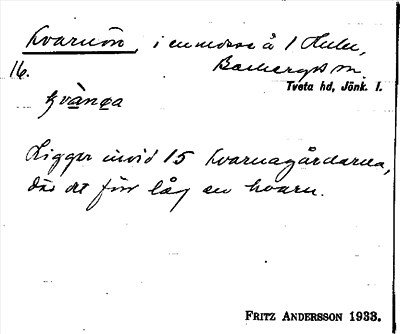 Kvarnön, i enndess å 1 Hulu,
16. Bankeryds sn.
Tveta hd, Jönk. l.
kvànǝa
Ligger invid 15 Kvarnagårdarna,
där det förr låg en kvarn.
FRITZ ANDERSSON 1933.